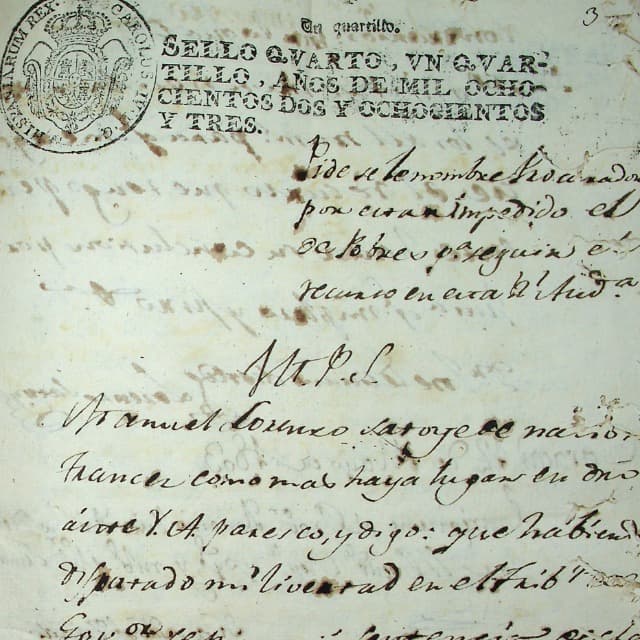 3
Un quartillo.
HISPANIARUM REX CAROLUS IV D G
SELLO QVARTO, VN QVAR-
TILLO, AÑOS DE MIL OCHO-
CIENTOS DOS Y OCHOCIENTOS
Y TRES.
Pide se le nombre Procurador
por estar impedido el
de Pobres pa. seguir el
recurso en esta Rl. Auda
M P S
Manuel Lorenzo de nacion
frances como mas haya lugar en dro
ante V. A paresco, y digo: que habiendo
disputado mi livertad en el Tribl
Govor se sentencia